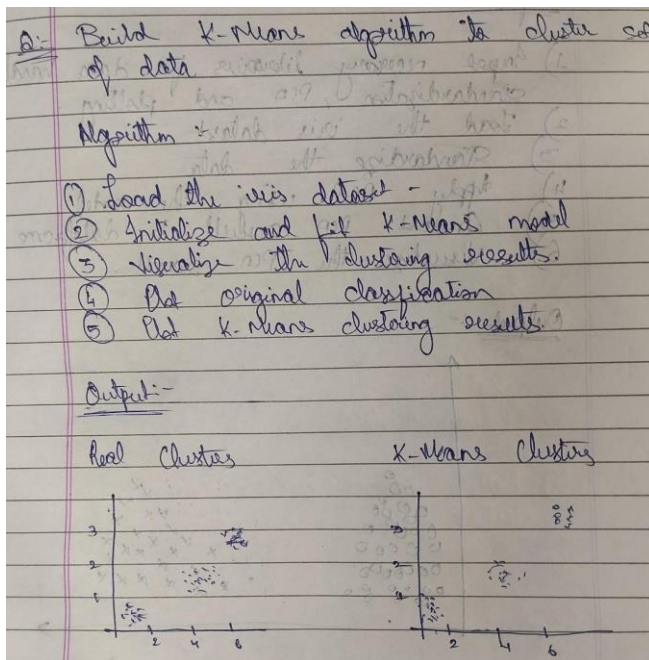 Q:- Build K-Means algorithm to cluster set
of data
Algorithm :-
① Load the iris dataset -
② Initialize and fit K-Means model
③ Visualize the clustering results.
④ Plot original classification
⑤ Plot K-Means clustering results.
Output:-
Real Clusters K-Means Clusters
3
2
1
2 4 6
2 4 6